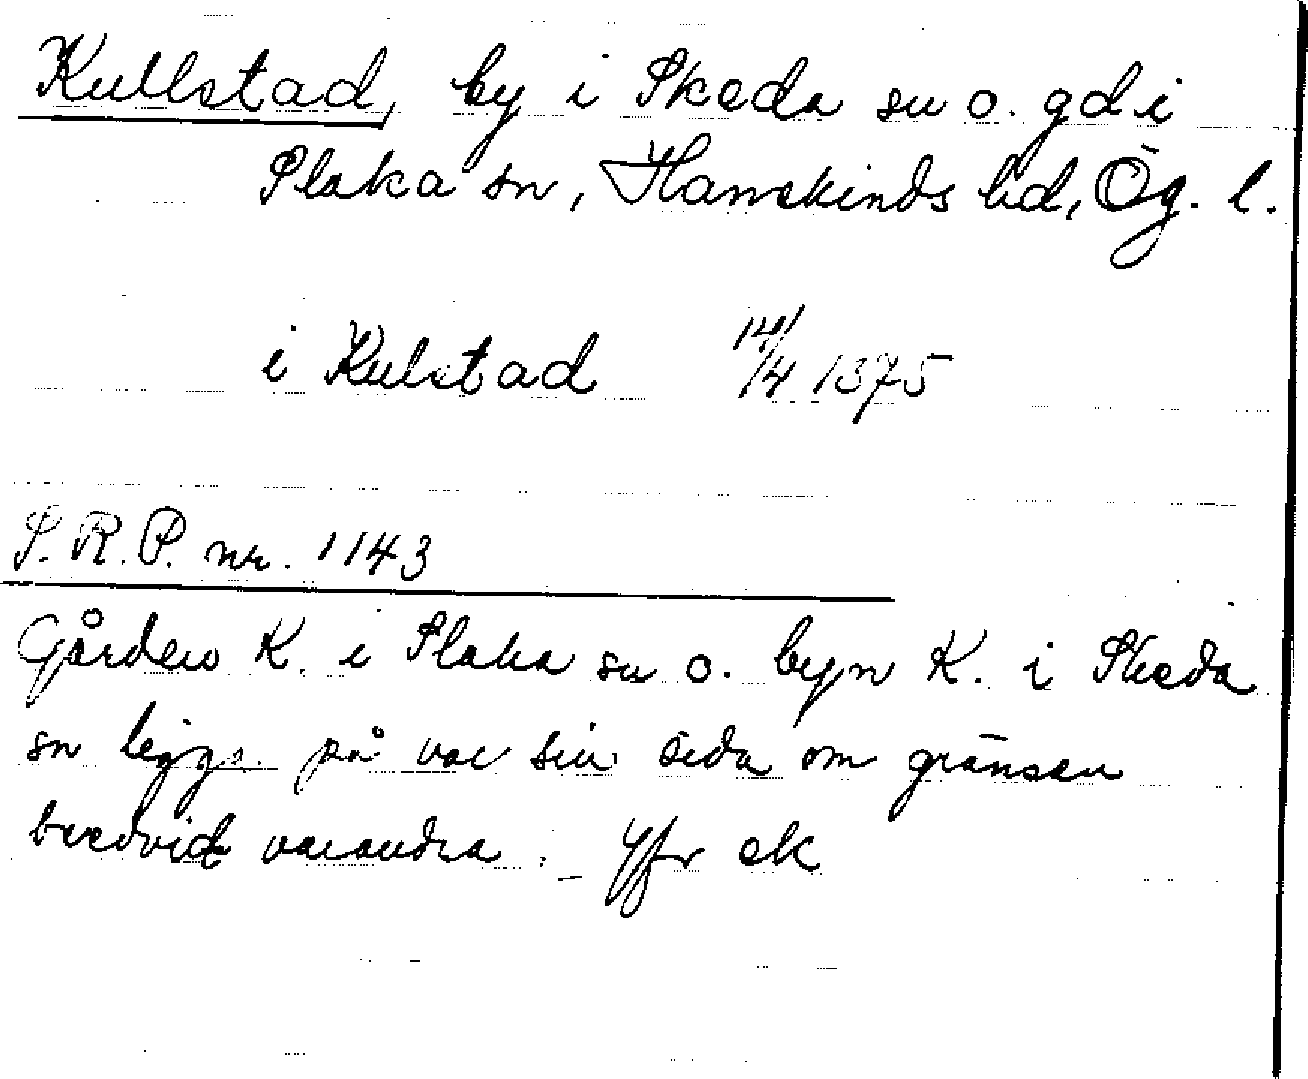 Kullstad, by i Skeda sn o. gd i
Slaka sn, Hanekinds hd, Ög. l.
i Kulstad 14/4 1375
S. R. P. nr. 1143
Gården K. i Slaka sn o. byn K. i Skeda
sn ligga på var sin sida om gränsen
bredvid varandra. – Jfr ek